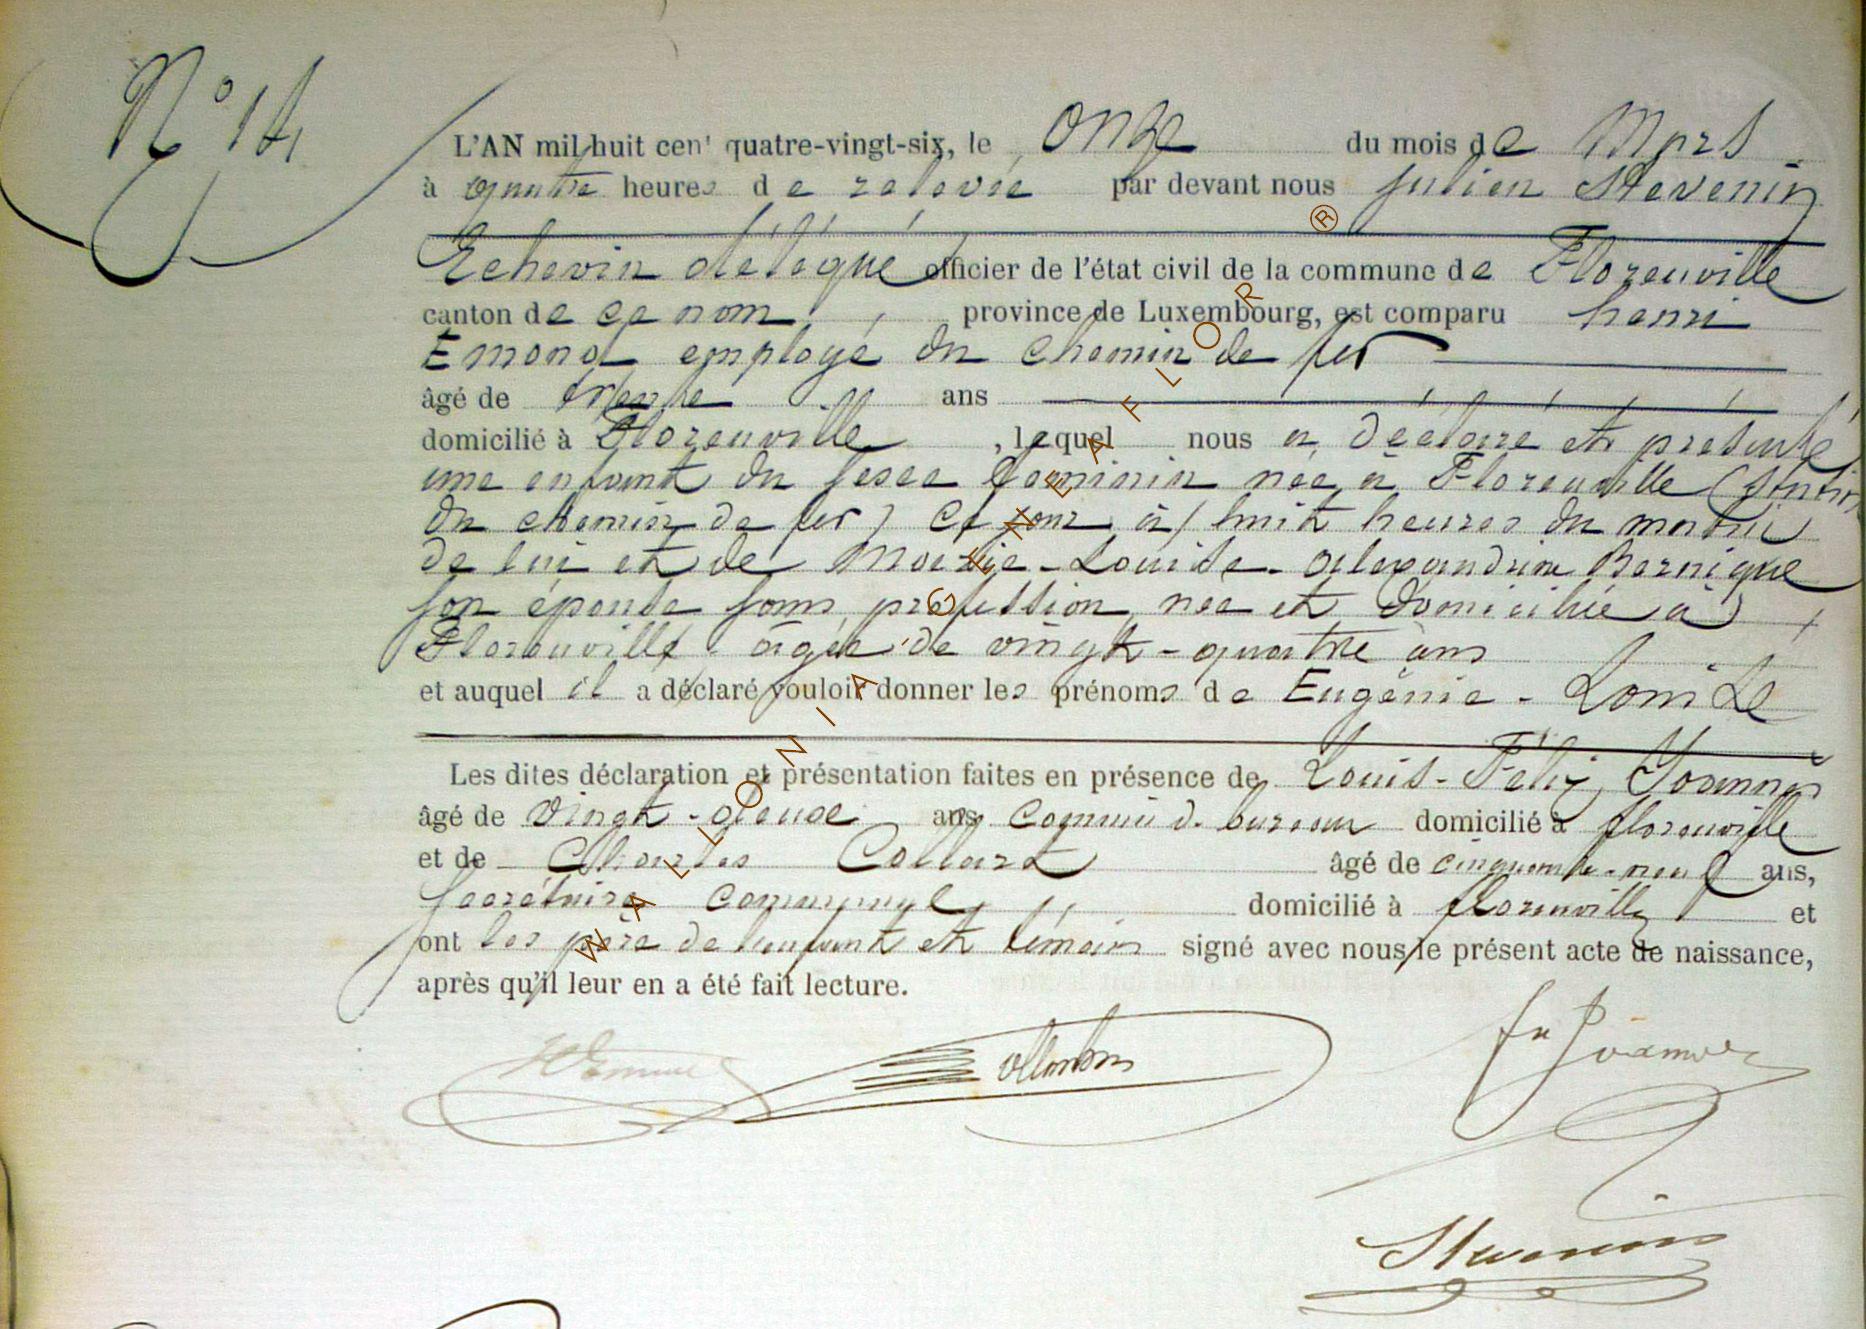 N° 14
L'AN mil huit cent quatre-vingt-six, le onze du mois de Mars
à quatre heures de relevée par devant nous Julien Stevenin
Echevin délégué officier de l'état civil de la commune de Florenville
canton de ce nom, province de Luxembourg, est comparu henri
Emond employé du chemin de fer
âgé de trente ans
domicilié à Florenville, lequel nous a déclaré et présenté
une enfant du sexe féminin née à Florenville (
du chemin de fer) ce jour à huit heures du matin
de lui et de Marie-Louise-alexandrine Bernique
son épouse sans profession née et domiciliée à
Florenville âgée de vingt-quatre ans
et auquel il a déclaré vouloir donner les prénoms de Eugénie-Louise
Les dites déclaration et présentation faites en présence de Louis-Félix Joannes
âgé de vingt-deux ans commis d. bureau domicilié à florenville
et de Charles Collard âgé de cinquante-neuf ans,
secrétaire communal domicilié à florenville et
ont les père de l'enfant et témoins signé avec nous le présent acte de naissance,
après qu'il leur en a été fait lecture.
Stevenin
WALLONIA'GENEAFLOR®